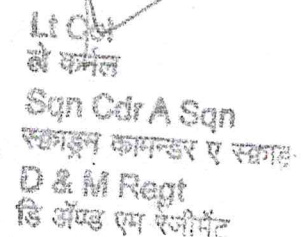 Lt Col
ले कर्नल
Sqn Cdr A Sqn
स्क्वाड्रन कमाण्डर ए
D & M Regt
डि अॅण्ड एम रेजीमेंट